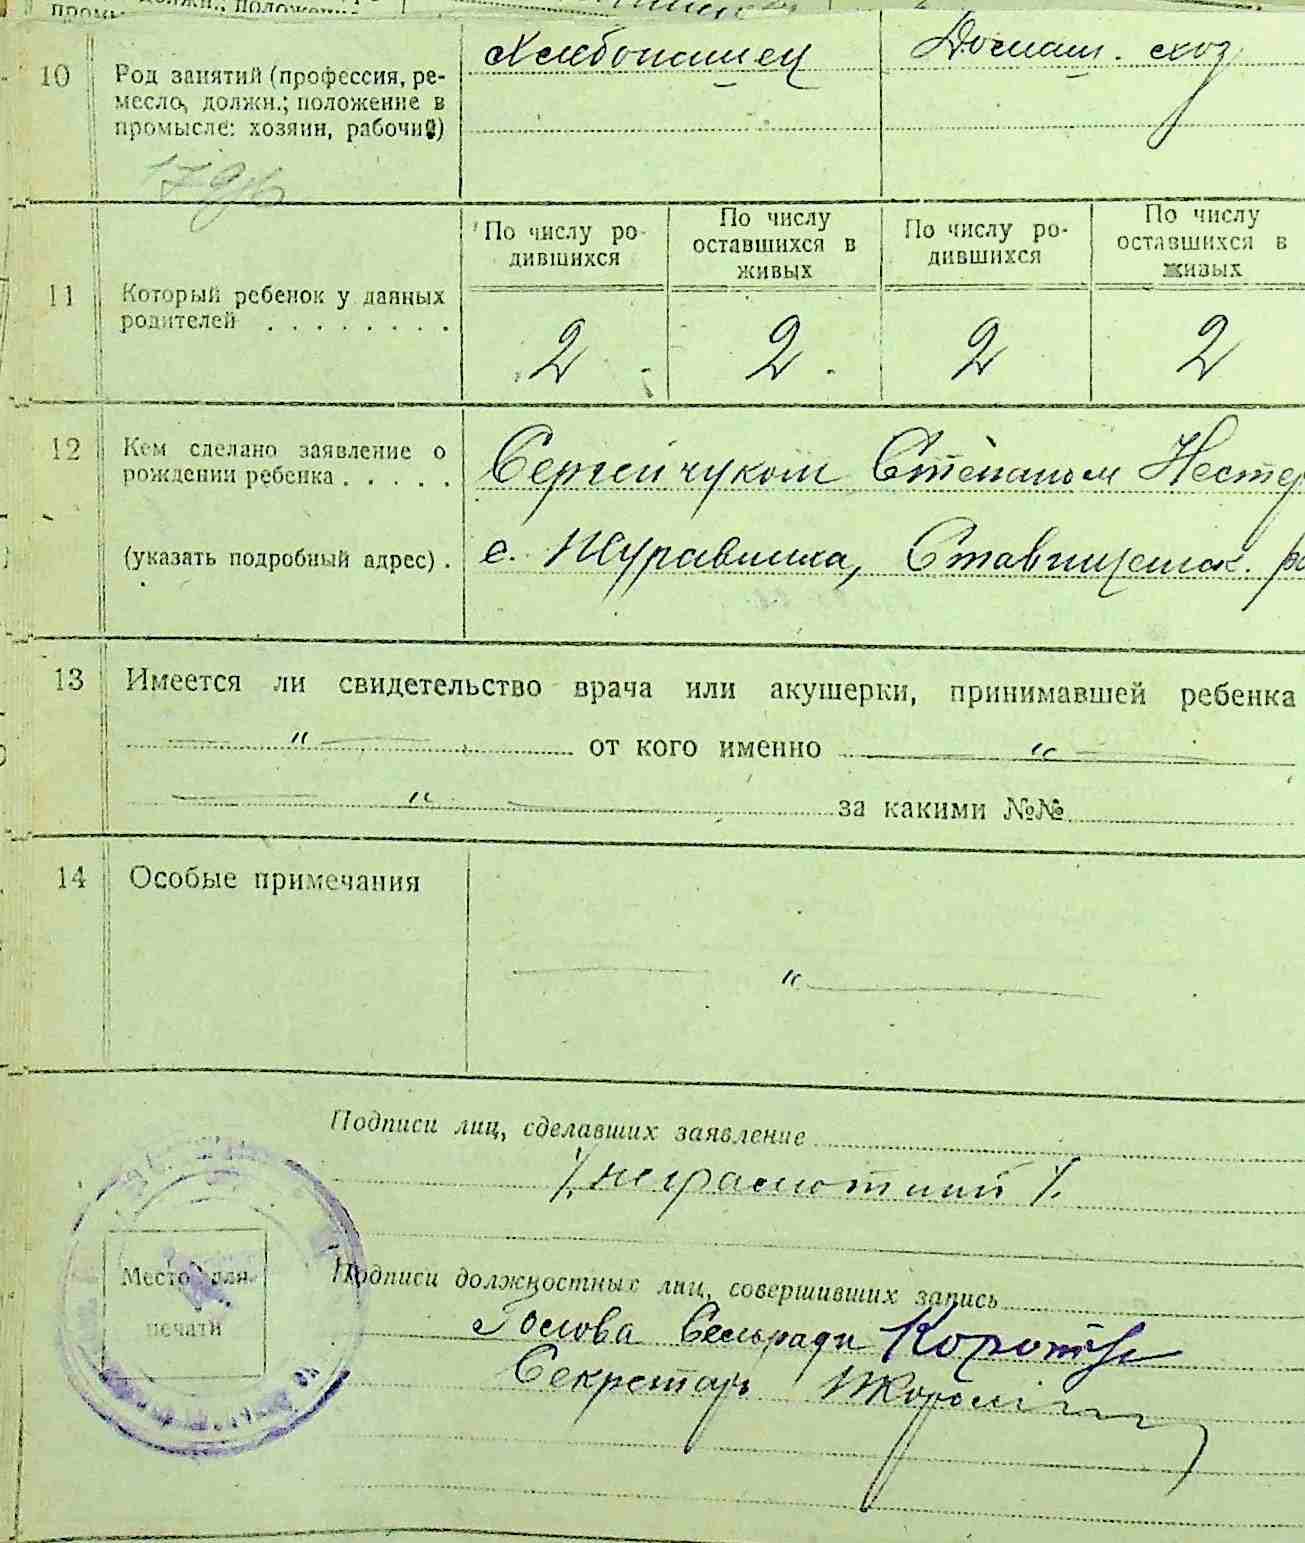 10 Род занятий (профессия, ре-
месло, должн.; положение в
промысле: хозяин, рабочий)
Хлебопашец
Домаш. сход
По числу ро-
дившихся
По числу
оставшихся в
живых
По числу ро-
дившихся
По числу
оставшихся в
живых
11 Который ребенок у данных
родителей . . . . . . . .
2 2 2 2
12 Кем сделано заявление о
рождении ребенка . . . . .
Сергейчуком Степаном Нестер
(указать подробный адрес) .
с. Журавлиха, Ставищанск.
13 Имеется ли свидетельство врача или акушерки, принимавшей ребенка
— " — от кого именно — " —
— " — за какими №№
14 Особые примечания
— " —
Подписи лиц, сделавших заявление
/. неграмотний /.
Место для
печати
Подписи должностных лиц, совершивших запись
Голова Сельради
Секретарь